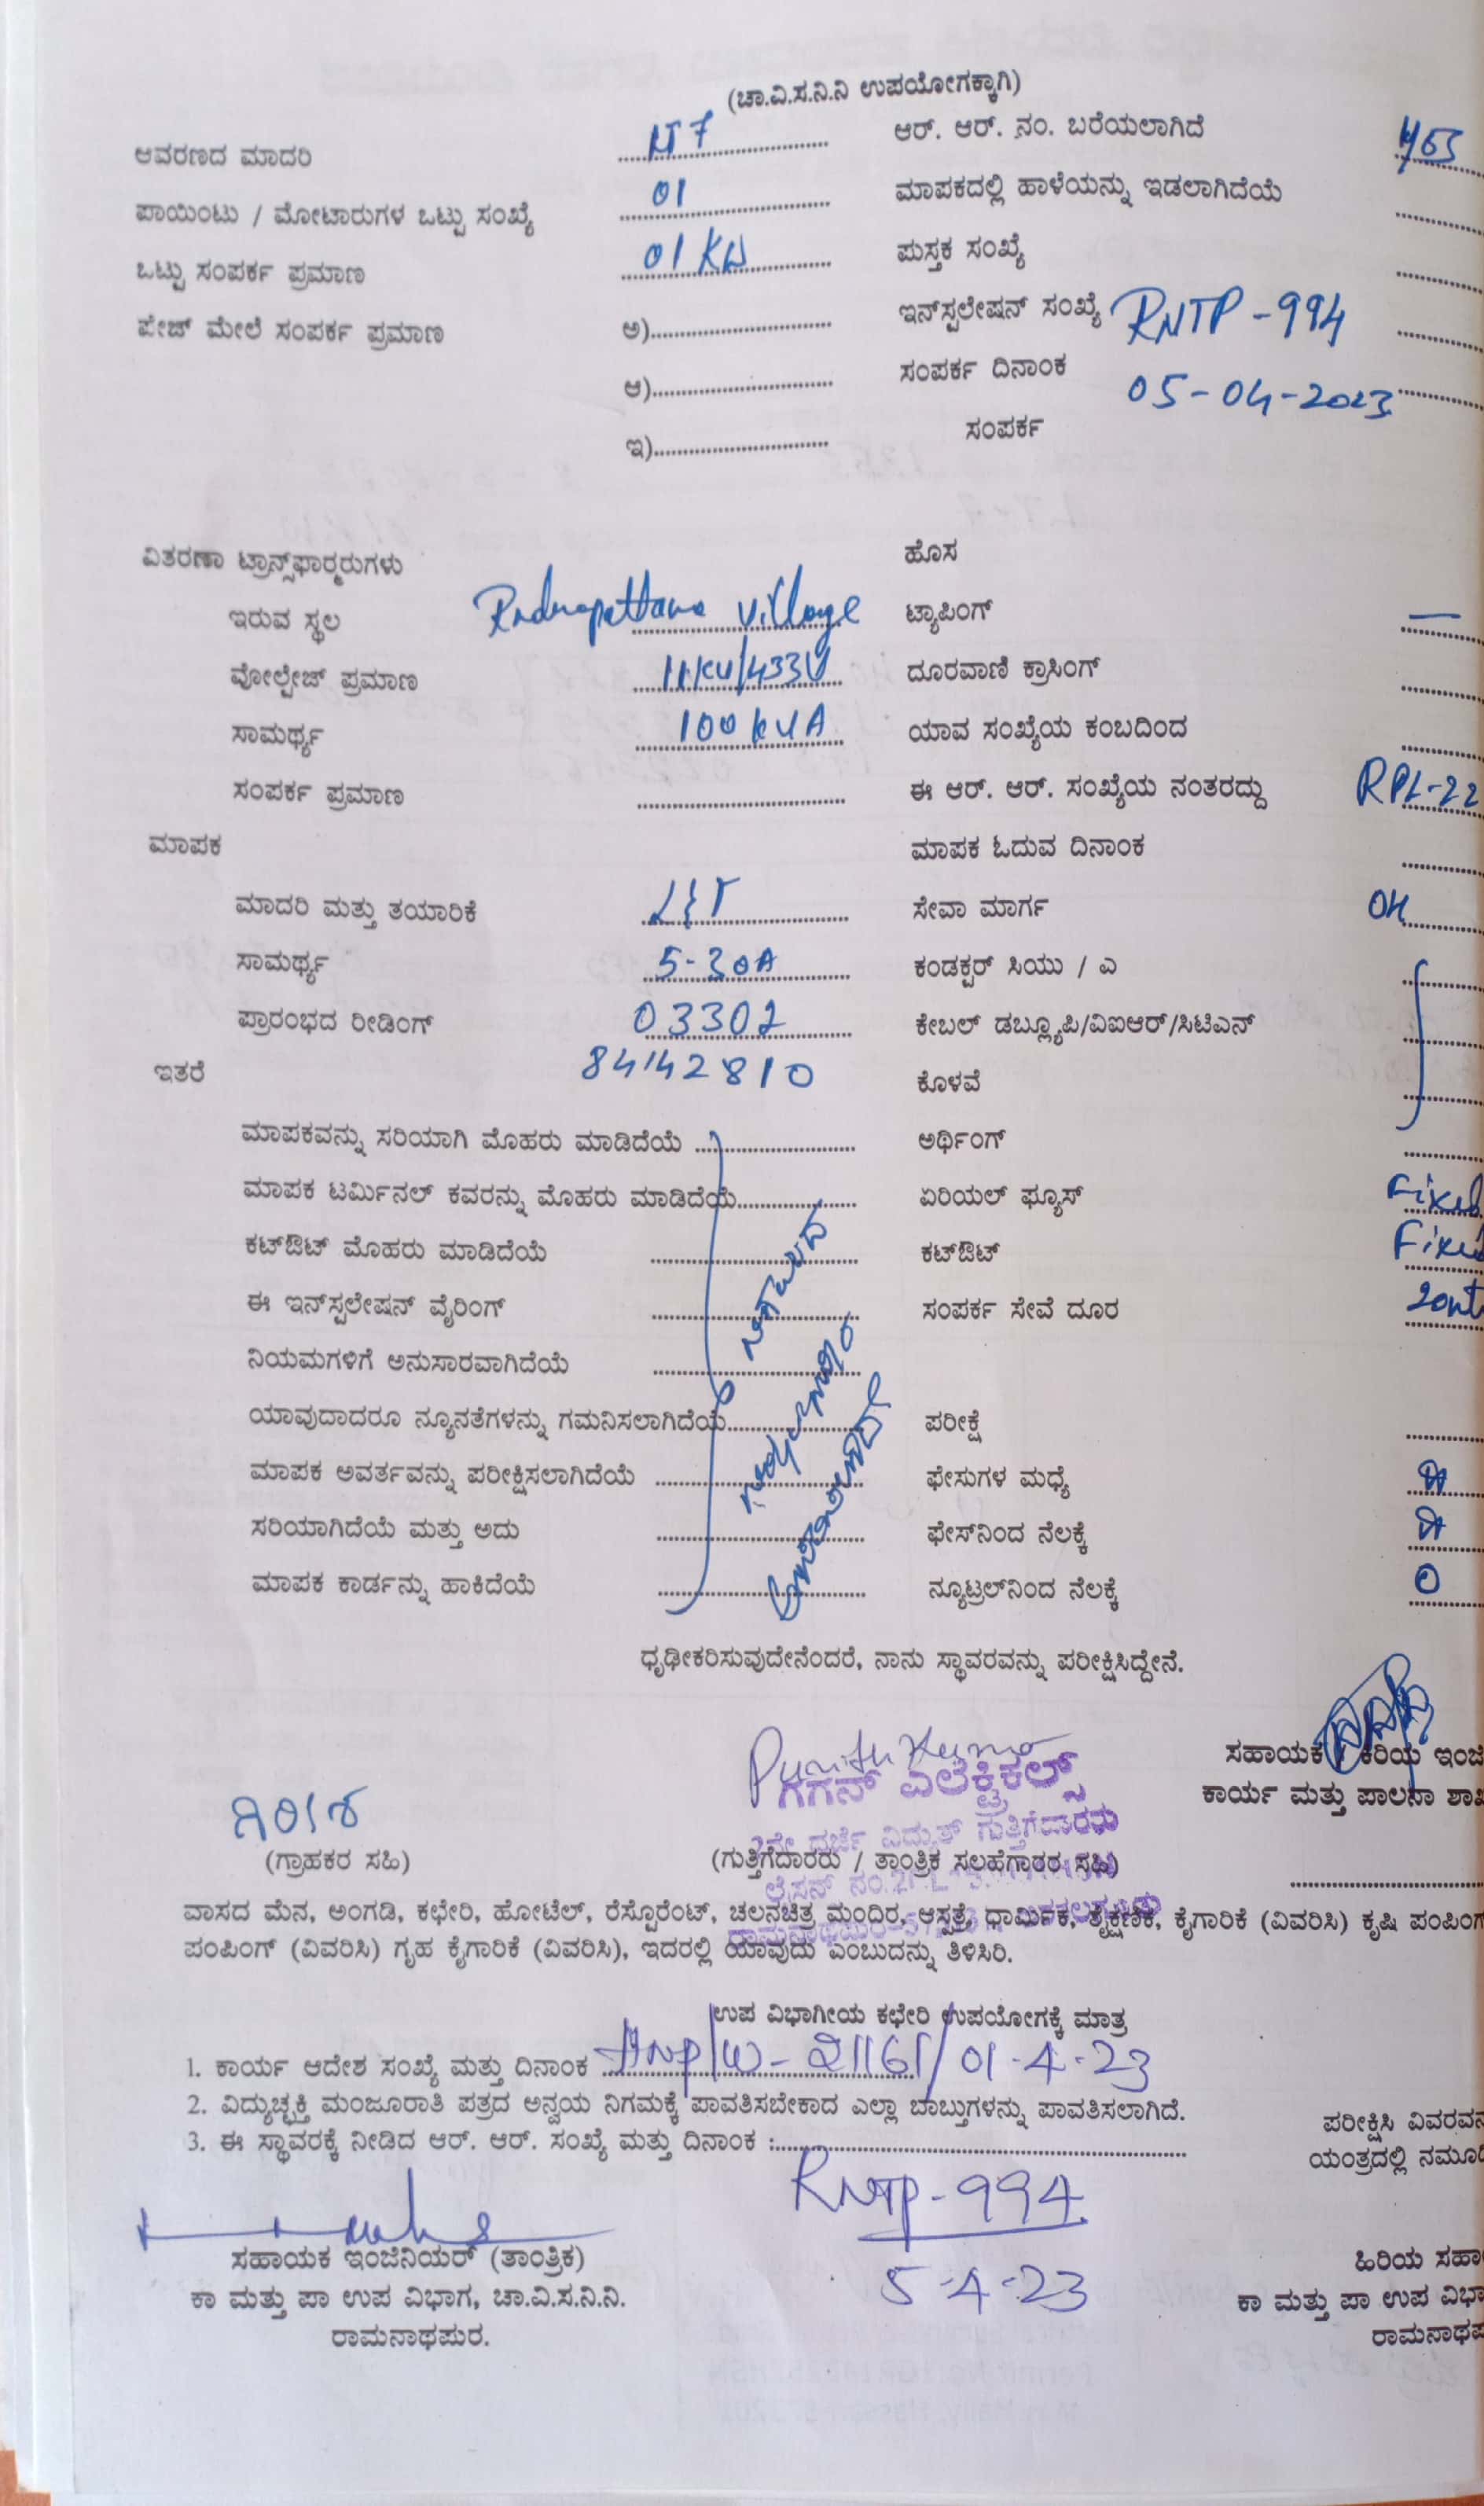 (ಚಾ.ವಿ.ಸ.ನಿ.ನಿ ಉಪಯೋಗಕ್ಕಾಗಿ)
ಆವರಣದ ಮಾದರಿ ಆರ್. ಆರ್. ನಂ. ಬರೆಯಲಾಗಿದೆ
ಪಾಯಿಂಟು / ಮೋಟಾರುಗಳ ಒಟ್ಟು ಸಂಖ್ಯೆ 01 ಮಾಪಕದಲ್ಲಿ ಹಾಳೆಯನ್ನು ಇಡಲಾಗಿದೆಯೆ
ಒಟ್ಟು ಸಂಪರ್ಕ ಪ್ರಮಾಣ 01 KW ಪುಸ್ತಕ ಸಂಖ್ಯೆ
ಪೇಜ್ ಮೇಲೆ ಸಂಪರ್ಕ ಪ್ರಮಾಣ ಅ) ಇನ್‌ಸ್ಪಲೇಷನ್ ಸಂಖ್ಯೆ RNTP-994
ಆ) ಸಂಪರ್ಕ ದಿನಾಂಕ 05-04-2023
ಇ) ಸಂಪರ್ಕ
ವಿತರಣಾ ಟ್ರಾನ್ಸ್‌ಫಾರ್‍ಮರುಗಳು ಹೊಸ
ಇರುವ ಸ್ಥಲ Rudrapattana Village ಟ್ಯಾಪಿಂಗ್ —
ವೋಲ್ಟೇಜ್ ಪ್ರಮಾಣ 11KV/433V ದೂರವಾಣಿ ಕ್ರಾಸಿಂಗ್
ಸಾಮರ್ಥ್ಯ 100 KVA ಯಾವ ಸಂಖ್ಯೆಯ ಕಂಬದಿಂದ
ಸಂಪರ್ಕ ಪ್ರಮಾಣ ಈ ಆರ್. ಆರ್. ಸಂಖ್ಯೆಯ ನಂತರದ್ದು RPL-22
ಮಾಪಕ ಮಾಪಕ ಓದುವ ದಿನಾಂಕ
ಮಾದರಿ ಮತ್ತು ತಯಾರಿಕೆ L&T ಸೇವಾ ಮಾರ್ಗ OH
ಸಾಮರ್ಥ್ಯ 5-30A ಕಂಡಕ್ಟರ್ ಸಿಯು / ಎ
ಪ್ರಾರಂಭದ ರೀಡಿಂಗ್ 03302 ಕೇಬಲ್ ಡಬ್ಲ್ಯೂಪಿ/ವಿಐಆರ್/ಸಿಟಿಎನ್
ಇತರೆ 84142810 ಕೊಳವೆ
ಮಾಪಕವನ್ನು ಸರಿಯಾಗಿ ಮೊಹರು ಮಾಡಿದೆಯೆ ಅರ್ಥಿಂಗ್
ಮಾಪಕ ಟರ್ಮಿನಲ್ ಕವರನ್ನು ಮೊಹರು ಮಾಡಿದೆಯೆ ಏರಿಯಲ್ ಫ್ಯೂಸ್ Fixed
ಕಟ್‌ಔಟ್ ಮೊಹರು ಮಾಡಿದೆಯೆ ಕಟ್‌ಔಟ್ Fixed
ಈ ಇನ್‌ಸ್ಪಲೇಷನ್ ವೈರಿಂಗ್ ಸಂಪರ್ಕ ಸೇವೆ ದೂರ
ನಿಯಮಗಳಿಗೆ ಅನುಸಾರವಾಗಿದೆಯೆ
ಯಾವುದಾದರೂ ನ್ಯೂನತೆಗಳನ್ನು ಗಮನಿಸಲಾಗಿದೆಯೆ ಪರೀಕ್ಷೆ
ಮಾಪಕ ಅವರ್ತವನ್ನು ಪರೀಕ್ಷಿಸಲಾಗಿದೆಯೆ ಫೇಸುಗಳ ಮಧ್ಯೆ
ಸರಿಯಾಗಿದೆಯೆ ಮತ್ತು ಅದು ಫೇಸ್‌ನಿಂದ ನೆಲಕ್ಕೆ
ಮಾಪಕ ಕಾರ್ಡನ್ನು ಹಾಕಿದೆಯೆ ನ್ಯೂಟ್ರಲ್‌ನಿಂದ ನೆಲಕ್ಕೆ 0
ಧೃಢೀಕರಿಸುವುದೇನೆಂದರೆ, ನಾನು ಸ್ಥಾವರವನ್ನು ಪರೀಕ್ಷಿಸಿದ್ದೇನೆ.
ಸಹಾಯಕ / ಕಿರಿಯ ಇಂಜಿ
Punith Kumar
ಗಗನ್ ಎಲೆಕ್ಟ್ರಿಕಲ್ಸ್
ಕಾರ್ಯ ಮತ್ತು ಪಾಲನಾ ಶಾಖ
2ನೇ ದರ್ಜೆ ವಿದ್ಯುತ್ ಗುತ್ತಿಗೆದಾರರು
(ಗ್ರಾಹಕರ ಸಹಿ) (ಗುತ್ತಿಗೆದಾರರು / ತಾಂತ್ರಿಕ ಸಲಹೆಗಾರರ ಸಹಿ)
ವಾಸದ ಮೆನ, ಅಂಗಡಿ, ಕಛೇರಿ, ಹೋಟೆಲ್, ರೆಸ್ಪೊರೆಂಟ್, ಚಲನಚಿತ್ರ ಮಂದಿರ, ಆಸ್ಪತ್ರೆ, ಧಾರ್ಮಿಕ, ಶೈಕ್ಷಣಿಕ, ಕೈಗಾರಿಕೆ (ವಿವರಿಸಿ) ಕೃಷಿ ಪಂಪಿಂಗ್
ಪಂಪಿಂಗ್ (ವಿವರಿಸಿ) ಗೃಹ ಕೈಗಾರಿಕೆ (ವಿವರಿಸಿ), ಇದರಲ್ಲಿ ಯಾವುದು ಎಂಬುದನ್ನು ತಿಳಿಸಿರಿ.
ಉಪ ವಿಭಾಗೀಯ ಕಛೇರಿ ಉಪಯೋಗಕ್ಕೆ ಮಾತ್ರ
1. ಕಾರ್ಯ ಆದೇಶ ಸಂಖ್ಯೆ ಮತ್ತು ದಿನಾಂಕ 01-4-23
2. ವಿದ್ಯುಚ್ಛಕ್ತಿ ಮಂಜೂರಾತಿ ಪತ್ರದ ಅನ್ವಯ ನಿಗಮಕ್ಕೆ ಪಾವತಿಸಬೇಕಾದ ಎಲ್ಲಾ ಬಾಬ್ತುಗಳನ್ನು ಪಾವತಿಸಲಾಗಿದೆ. ಪರೀಕ್ಷಿಸಿ ವಿವರವನ
3. ಈ ಸ್ಥಾವರಕ್ಕೆ ನೀಡಿದ ಆರ್. ಆರ್. ಸಂಖ್ಯೆ ಮತ್ತು ದಿನಾಂಕ : ಯಂತ್ರದಲ್ಲಿ ನಮೂದಿ
RNTP-994
5-4-23
ಸಹಾಯಕ ಇಂಜಿನಿಯರ್ (ತಾಂತ್ರಿಕ) ಹಿರಿಯ ಸಹಾ
ಕಾ ಮತ್ತು ಪಾ ಉಪ ವಿಭಾಗ, ಚಾ.ವಿ.ಸ.ನಿ.ನಿ. ಕಾ ಮತ್ತು ಪಾ ಉಪ ವಿಭಾ
ರಾಮನಾಥಪುರ. ರಾಮನಾಥಪ